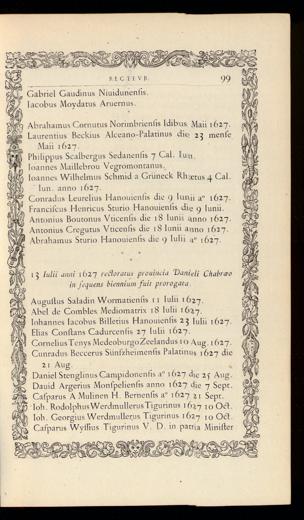 RECTEVR. 99
Gabriel Gaudinus Niuidunenſis.
Iacobus Moydatus Aruernus.
Abrahamus Cornutus Norimbrienſis Idibus Maii 1627.
Laurentius Beckius Alceano-Palatinus die 23 menſe
Maii 1627.
Philippus Scalbergus Sedanenſis 7 Cal. Iun.
Ioannes Maillebrou Vegromontanus.
Ioannes Wilhelmus Schmid a Grüneck Rhætus 4 Cal.
Iun. anno 1627.
Conradus Leurelius Hanouienſis die 9 Iunii aº 1627.
Franciſcus Henricus Sturio Hanouienſis die 9 Iunii.
Antonius Boutonus Vticenſis die 18 Iunii anno 1627.
Antonius Cregutus Vticenſis die 18 Iunii anno 1627.
Abrahamus Sturio Hanouienſis die 9 Iulii aº 1627.
13 Iulii anni 1627 rectoratus prouincia Danieli Chabræo
in ſequens biennium fuit prorogata.
Auguſtus Saladin Wormatienſis 11 Iulii 1627.
Abel de Combles Mediomatrix 18 Iulii 1627.
Iohannes Iacobus Billetius Hanouienſis 23 Iulii 1627.
Elias Conſtans Cadurcenſis 27 Iulii 1627.
Cornelius Tenys Medeoburgo Zeelandus 10 Aug. 1627.
Cunradus Beccerus Sünfzheimenſis Palatinus 1627 die
21 Aug.
Daniel Stenglinus Campidonenſis aº 1627 die 25 Aug.
Dauid Argerius Monſpelienſis anno 1627 die 7 Sept.
Caſparus A Mulinen H. Bernenſis aº 1627 21 Sept.
Ioh. Rodolphus Werdmullerus Tigurinus 1627 10 Oct.
Ioh. Georgius Werdmullerus Tigurinus 1627 10 Oct.
Caſparus Wyſſius Tigurinus V. D. in patria Miniſter